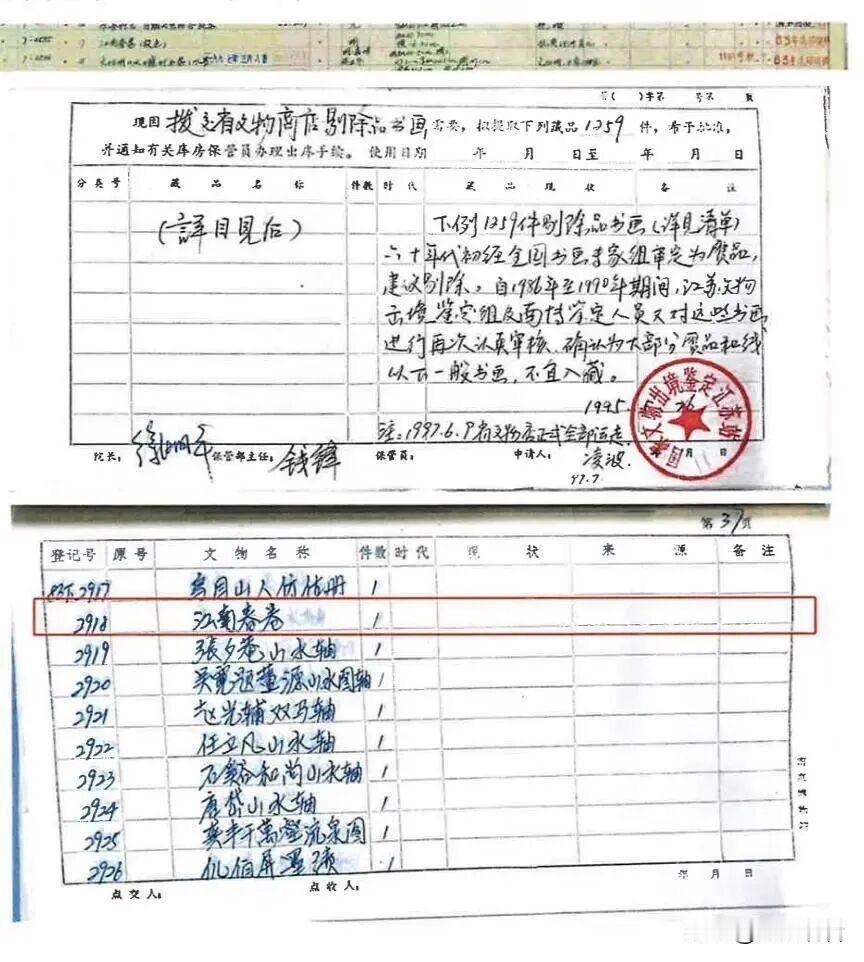 江南春卷
83年
第( )字第 号第 页
现因 拨交省文物商店剔除品书画 需要，拟提取下列藏品 1259 件，希予批准，
并通知有关库房保管员办理出库手续。 使用日期 年 月 日至 年 月 日
分类号 藏品名称 件数 时代 藏品现状 备注
(詳目見后)
下列1259件剔除品书画(详见清单)
六十年代初经全国书画专家组审定为赝品，
建议剔除。自1986年至1990年期间，江苏文物
出境鉴定组及南博鉴定人员又对这些书画
进行再次认真审核，确认为大部分赝品和线
以下一般书画，不宜入藏。
1995. 26
国家文物出境鉴定江苏站
注：1997.6.9省文物店正式全部运走
院长： 徐湖平 保管部主任： 钱锋 保管员： 申请人： 凌波 月 日
97.7.
第 37 页
登记号 原号 文物名称 件数 时代 现状 来源 备注
2917 册 1
2918 江南春卷 1
2919 張夕菴山水轴 1
2920 吴寛题董源山水图轴 1
2921 赵光辅双马轴 1
2922 任立凡山水轴 1
2923 石谿和尚山水轴 1
2924 唐岱山水轴 1
2925 流泉图 1
2926 伊佰屏墨 1
点交人： 点收人： 年 月 日